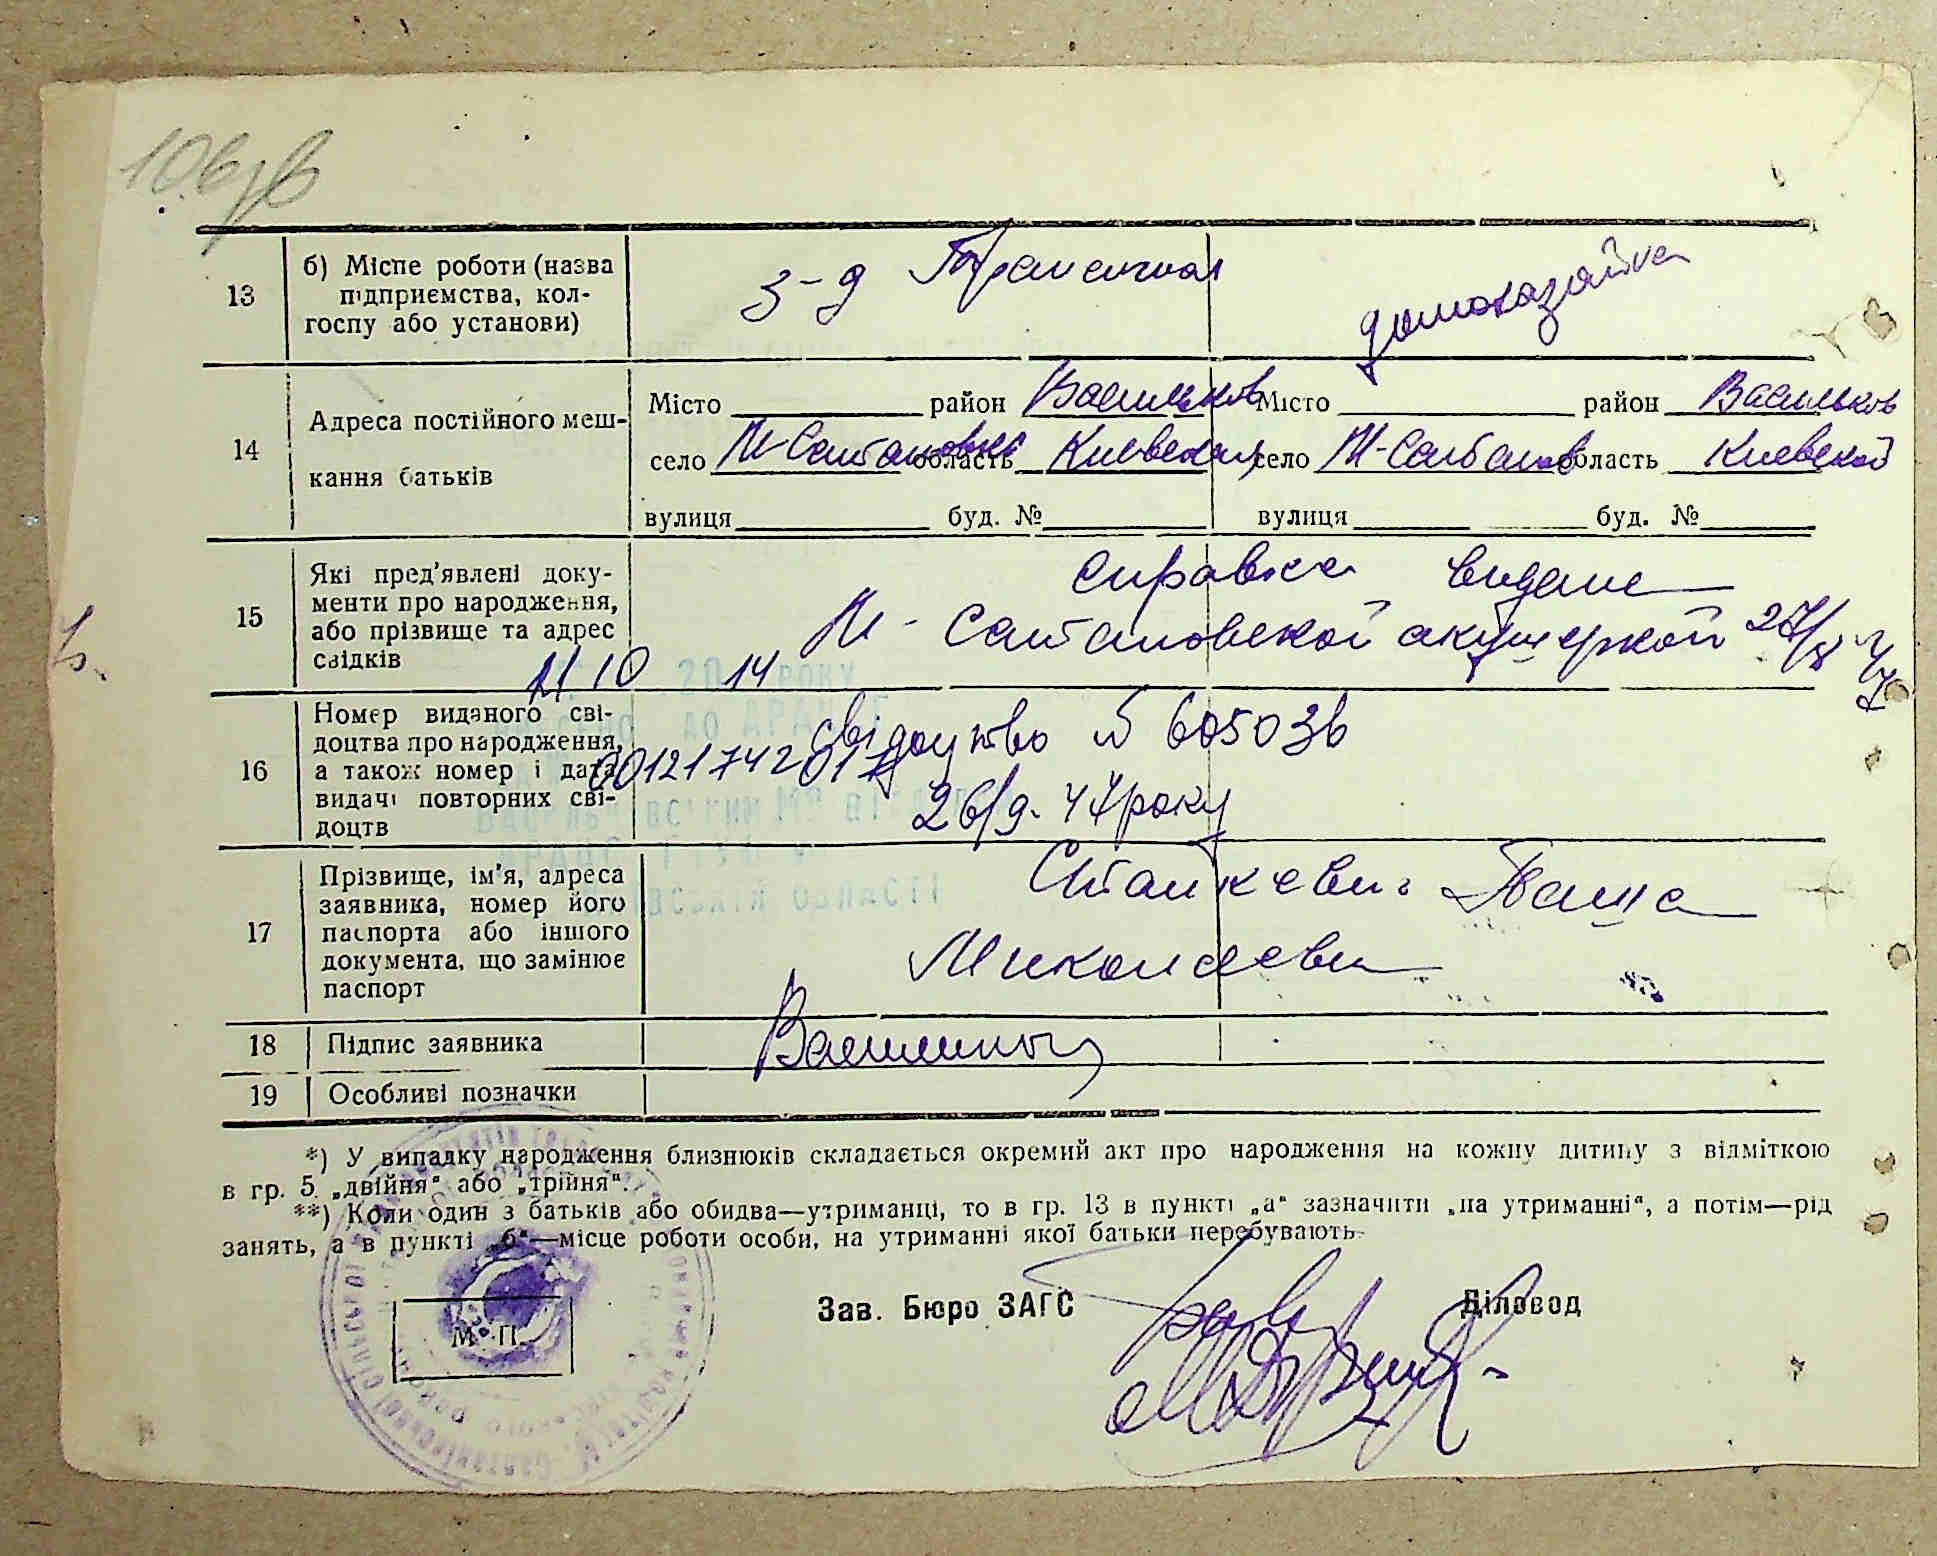 106зв
13 б) Місце роботи (назва підприємства, колгоспу або установи) з-д домохазайка
14 Адреса постійного мешкання батьків
Місто район Васильков Місто район Васильков
село М-Салтановка область Киевская село М-Салтанов область Киевской
вулиця буд. № вулиця буд. №
15 Які пред'явлені документи про народження, або прізвище та адрес свідків
справка видане
М-Салтановской акушеркой 27/8 47
11 10 2014 РОКУ
16 Номер виданого свідоцтва про народження, а також номер і дата видачі повторних свідоцтв
свідоцтво № 605036
00121742017
26/9. 47 року
ДО АРАНСГ
ОБЛАСТІ
17 Прізвище, ім'я, адреса заявника, номер його паспорта або іншого документа, що замінює паспорт
Станкевич
Миколаеви
18 Підпис заявника
19 Особливі позначки
*) У випадку народження близнюків складається окремий акт про народження на кожну дитину з відміткою
в гр. 5 „двійня“ або „трійня“.
**) Коли один з батьків або обидва—утриманці, то в гр. 13 в пункті „а“ зазначити „на утриманні“, а потім—рід
занять, а в пункті „б“—місце роботи особи, на утриманні якої батьки перебувають.
Зав. Бюро ЗАГС Діловод
М. П.